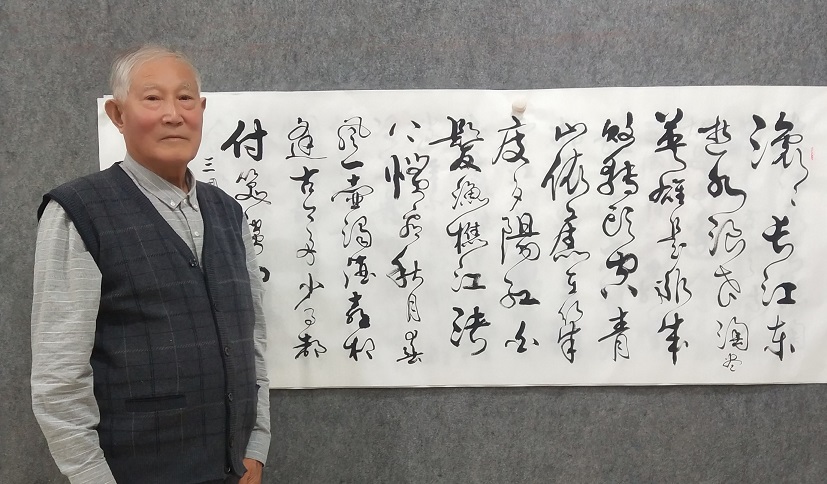 滚々长江东
逝水浪花淘尽
英雄是非成
败转头空青
山依旧在几
度夕陽红白
髮漁樵江渚
上惯看秋月春
風一壶濁酒喜相
逢古今多少事都
付笑谈中
三国